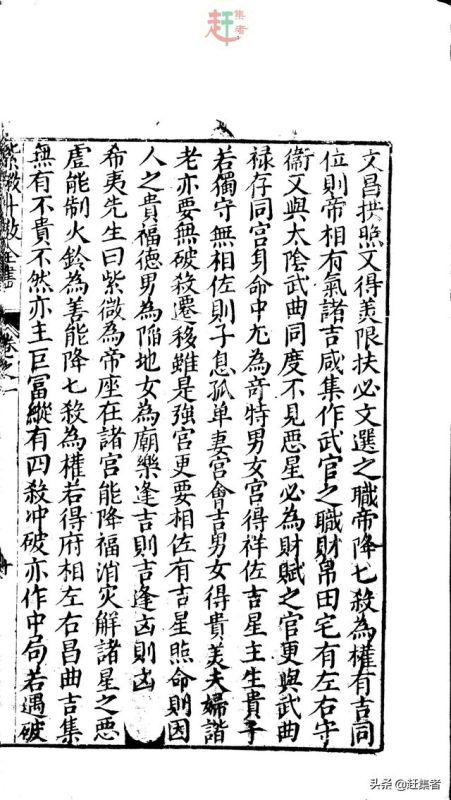 赶集者
文昌拱照又得美限扶必文選之職帝降七殺為權有吉同
位則帝相有氣諸吉咸集作武官之職財帛田宅有左右守
衛又與太陰武曲同度不見惡星必為財賦之官更與武曲
禄存同宮身命中尤為奇特男女宮得祥佐吉星主生貴子
若獨守無相佐則子息孤单妻宮會吉男女得貴美夫婦諧
老亦要無破殺遷移雖是強宮更要相佐有吉星照命則因
人之貴福德男為陷地女為廟樂逢吉則吉逢凶則凶
希夷先生曰紫微為帝座在諸宮能降福消灾解諸星之惡
虛能制火鈴為善能降七殺為權若得府相左右昌曲吉集
無有不貴不然亦主巨富縱有四殺冲破亦作中局若遇破
头条 @赶集者